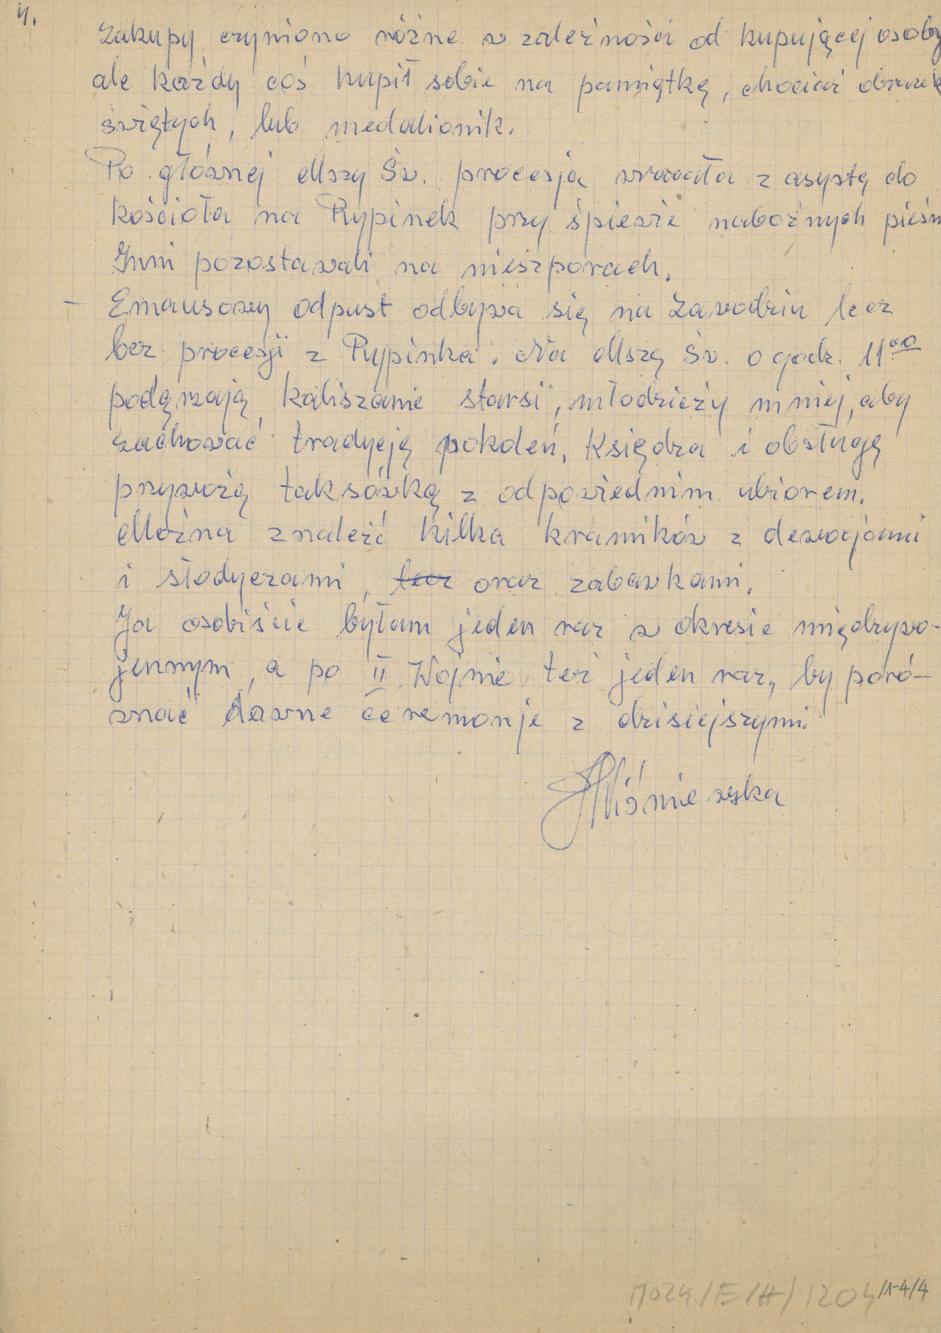 4.
Zakupy czyniono różne w zależności od kupującej osoby
ale każdy coś kupił sobie na pamiątkę, chociaż obrazek
świętych, lub medalionik.
Po głównej Mszy Św. procesja wracała z asystą do
kościoła na Rypinek przy śpiewie nabożnych pieśn
Inni pozostawali na nieszporach.
– Emausowy odpust odbywa się na Zawodziu lecz
bez procesji z Rypinka. Na Mszę Św. o godz. 11⁰⁰
podążają kaliszanie starsi, młodzieży mniej, aby
zachować tradycję pokoleń. Księdza i obsługę
przywożą taksówką z odpowiednim ubiorem.
Można znaleźć kilka kramików z dewocjami
i słodyczami, lecz oraz zabawkami.
Ja osobiście byłam jeden raz w okresie międzywo-
jennym, a po II Wojnie też jeden raz, by porów-
wnać dawne ceremonje z dzisiejszymi.
Wiśniewska
MOZK/E/H/1204/1-4/4